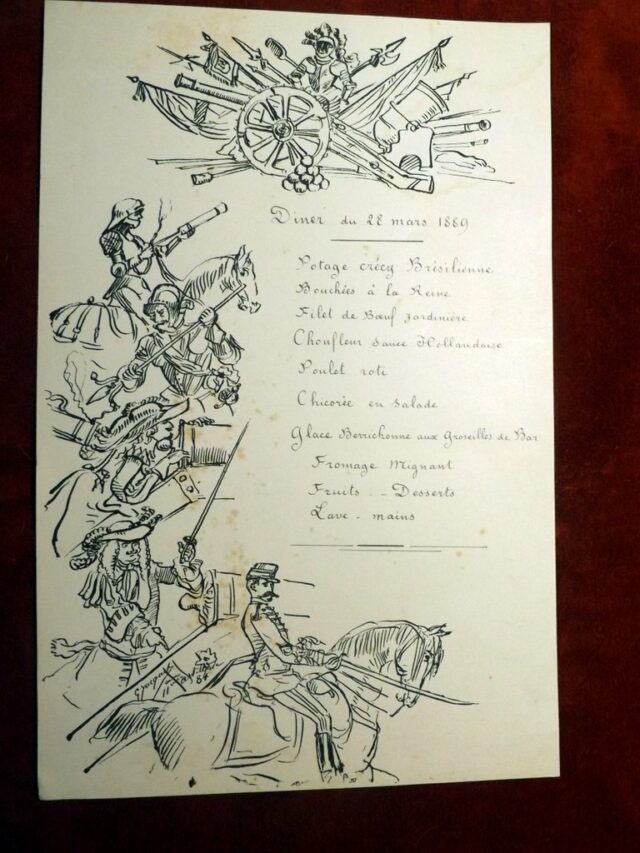 Diner du 28 mars 1889
Potage crécy Brésilienne
Bouchées à la Reine
Filet de Bœuf Jardinière
Choufleur sauce Hollandaise
Poulet roti
Chicorée en salade
Glace Berrichonne aux Groseilles de Bar
Fromage Mignant
Fruits - Desserts
Lave-mains
84